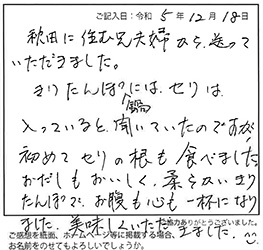 ご記入日：令和 5年 12月 18日
秋田に住む兄夫婦から、送って
いただきました。
きりたんぽ鍋には、セリは
入っていると、聞いていたのですが
初めてセリの根も食べました。
おだしもおいしく、柔らかいきり
たんぽで、お腹も心も一杯になり
ました。美味しくいただきました。
協力ありがとうございました。
ご感想を紙面、ホームページ等に掲載する場合、
お名前をのせてもよろしいでしょうか。